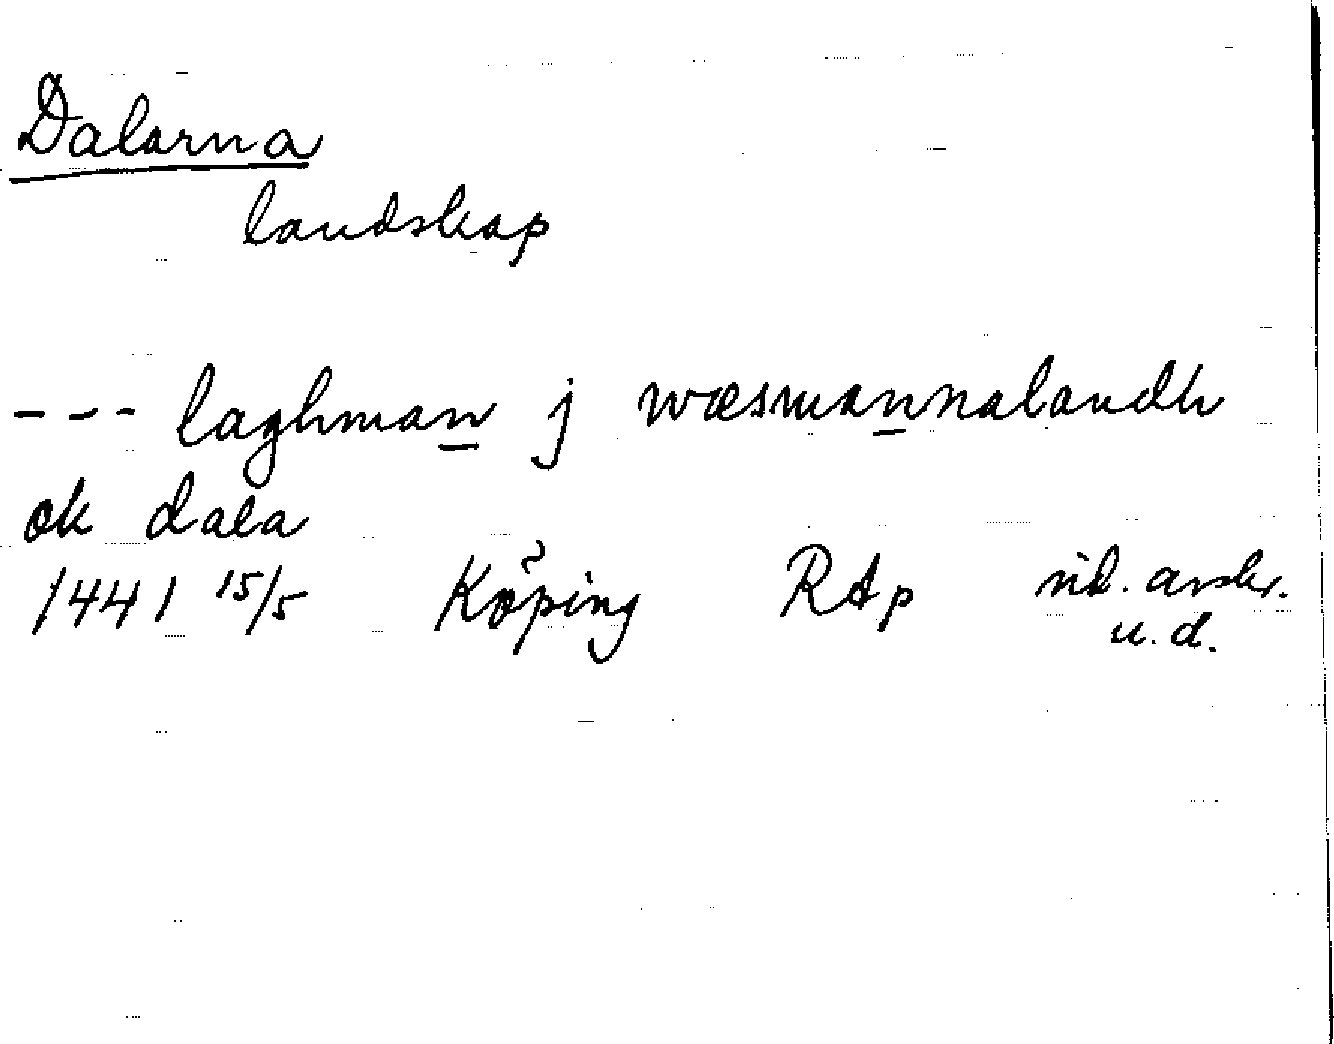 Dalarna
landskap
--- laghman j wæsmannalandh
ok dala
1441 15/5 Köping RAp vid. avskr.
u.d.